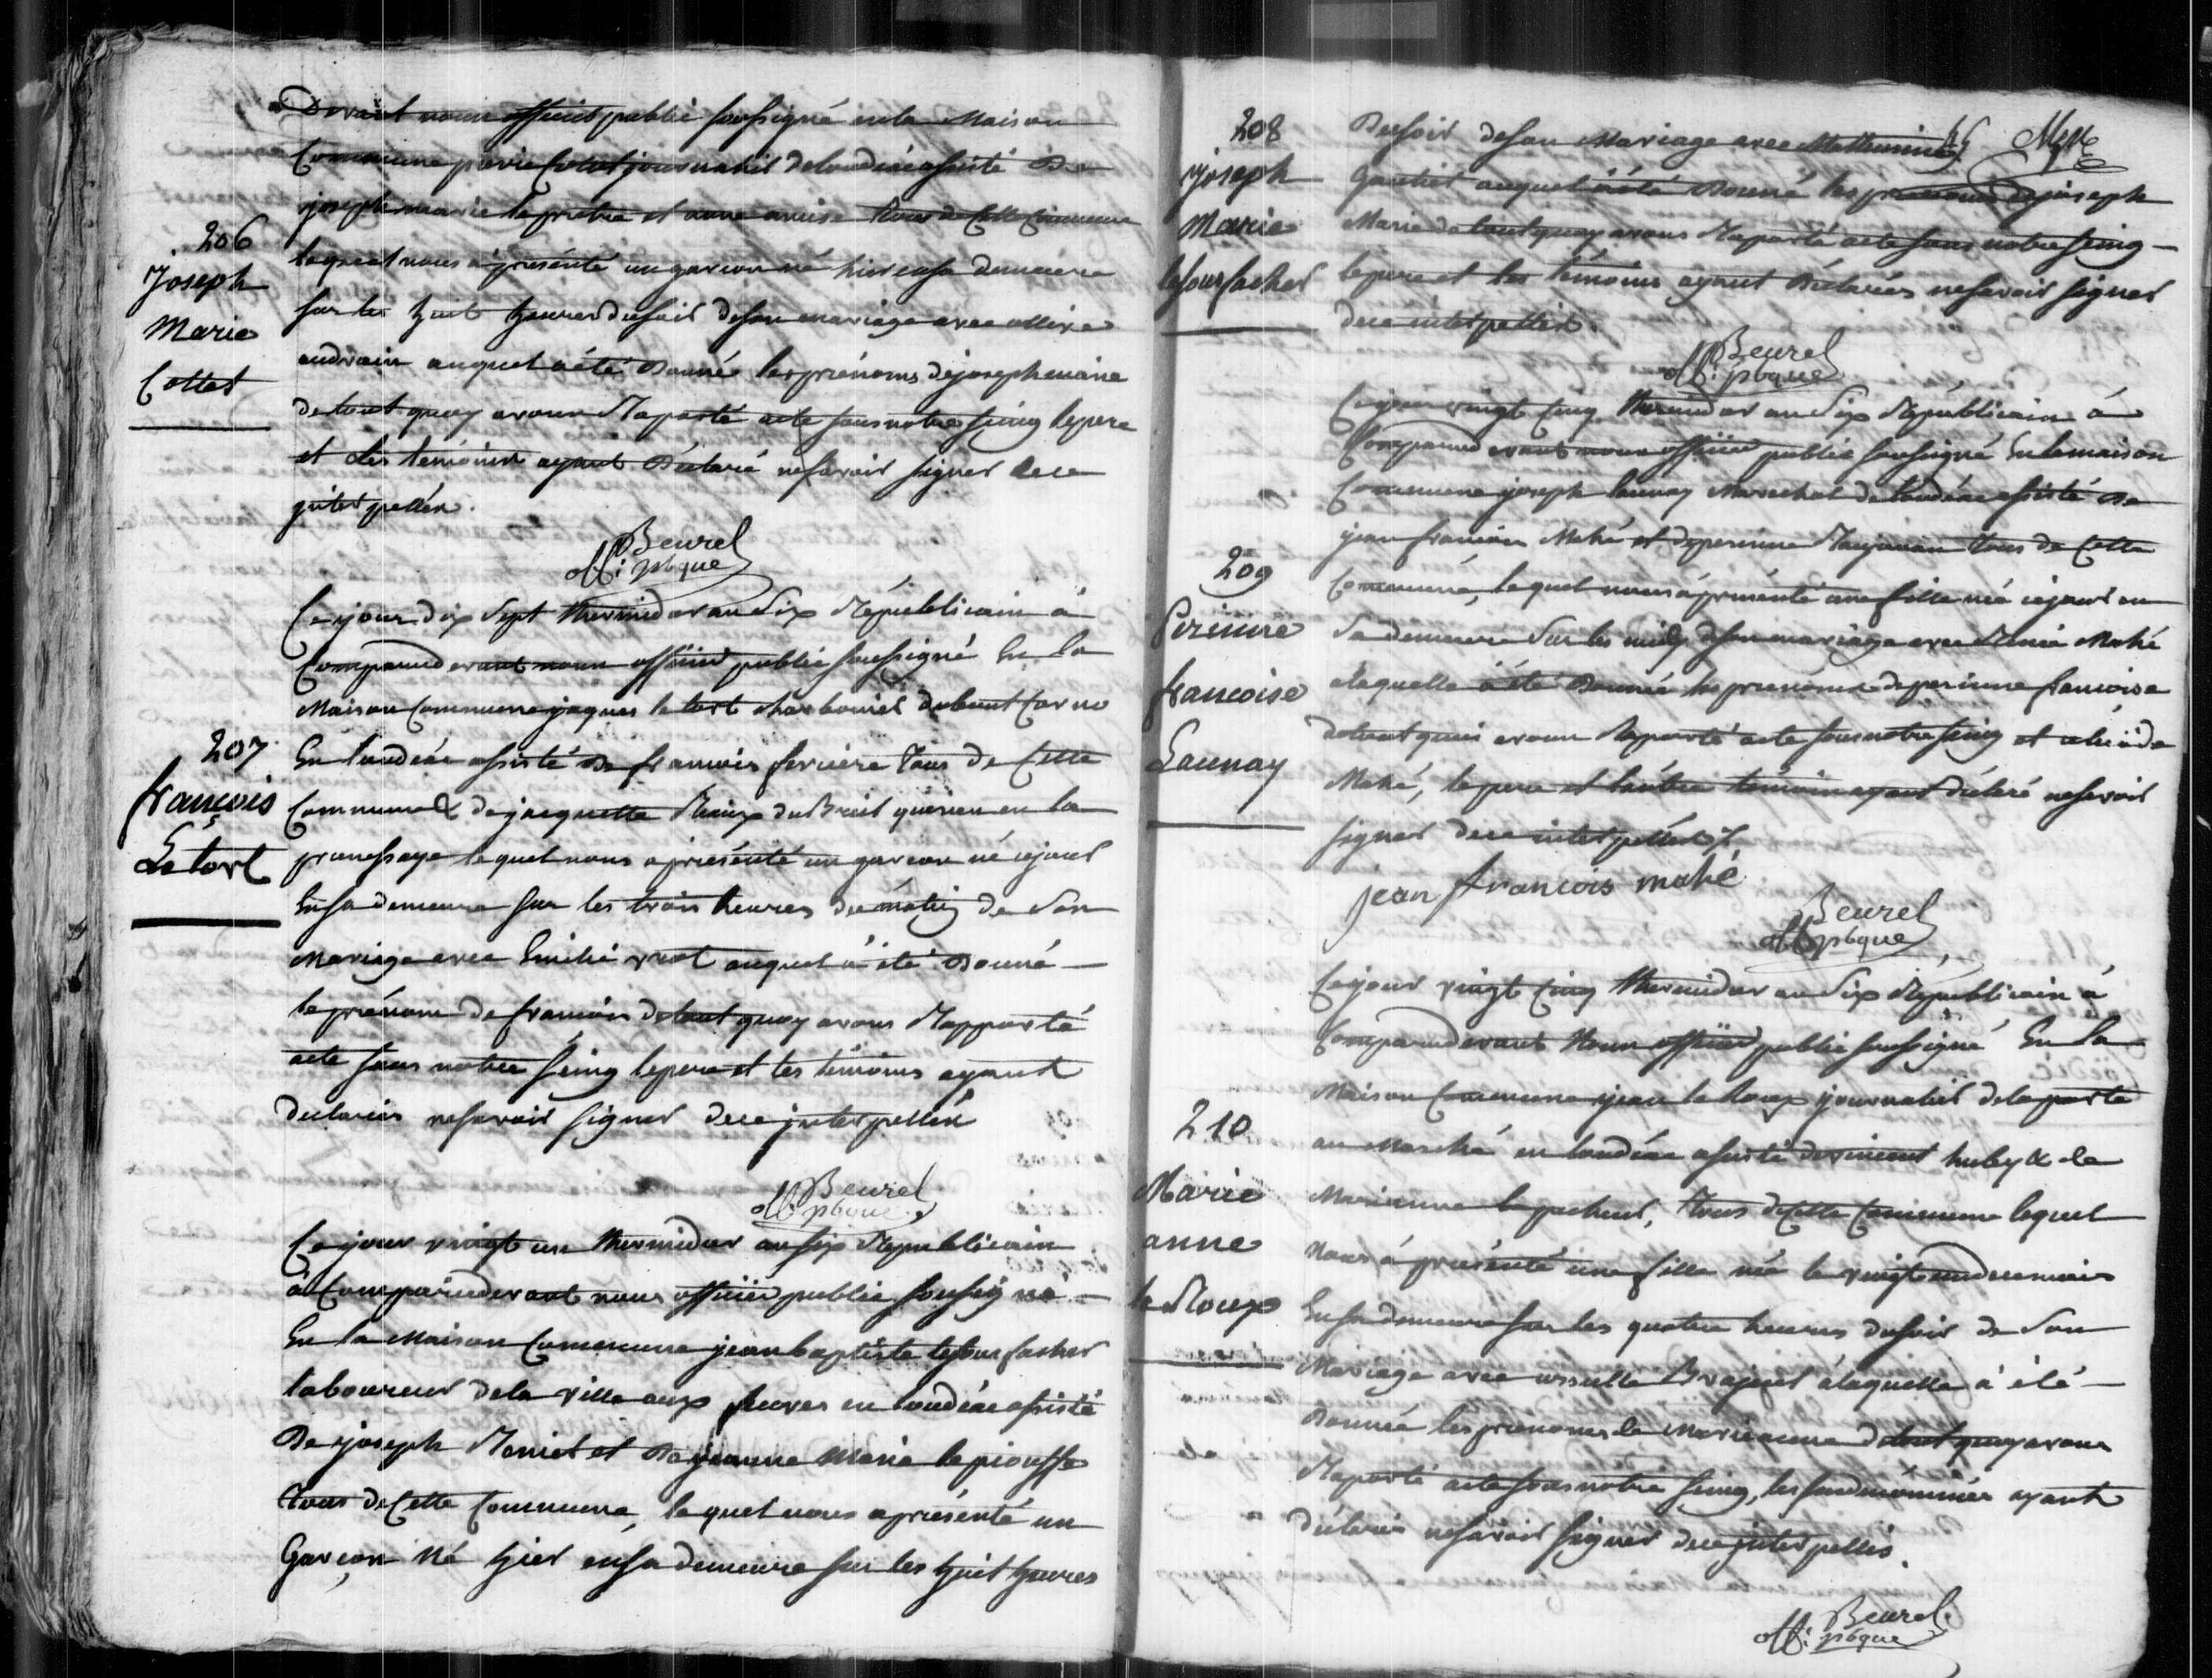 Devant nous officier public soussigné en la Maison
Commune pierre Cottet journalier de loudéac assisté De
joseph marie le pretre et anne amise tous de Cette Commune
206
Joseph
Marie
Cottet
lequel nous à présenté un garcon né hier en sa demeure
sur les huit heures du soir de son mariage avec ollive
audrain auquel a été Donné les prénoms de joseph marie
de tout quoy avons Raporté acte sous notre seing le pere
et les temoins ayant Déclaré ne savoir signer de ce
jnterpellés.
Beurel
off: pbque
Ce jour dix Sept thermidor an Six Républicain à
Comparu devant nous officier public soussigné En la
Maison Commune jaques le tort charbonier du bout
207
françois
Le tort
En loudéac assisté De francois ferriere Tous de Cette
Commune & de jacquette du Breil querien en la
lequel nous a présenté un garcon né ce jour
En sa demeure sur les trois heures du matin de Son
Mariage avec auquel à été Donné
le prénom de francois de tout quoy avons Rapporté
acte sous notre seing le pere et les témoins ayant
declarés ne savoir signer de ce jnterpellés
Beurel
off: pbque
Ce jour vingt un thermidor an six Républicain
à Comparu devant nous officier public soussigné
En la Maison Commune jean baptiste le four
laboureur de la ville aux feuvres en loudéac assisté
De joseph et De jeanne Marie le piouffe
tous de Cette Commune, lequel nous a présenté un
Garçon Né hier en sa demeure sur les huit heures
208
joseph
Marie
Du soir de son Mariage avec Mathurine
Gautier auquel à été Donné les prenoms de joseph
Marie de tout quoy avons Raporté acte sous notre seing
le pere et les témoins ayant Déclarés ne savoir signer
de ce interpellés.
Beurel
off: pbque
Ce jour vingt Cinq thermidor an Six Républicain à
Comparu devant nous officier public soussigné En la maison
Commune joseph launay Marechal de loudéac assisté De
jean francois Mahé et de perinne tous de Cette
209
Perinne
francoise
Launay
Commune, lequel nous à présenté une fille née ce jour en
Sa demeure Sur les midy de son mariage avec Mahé
a laquelle à été Donnée les prenoms de perinne francoise
de tout quoi avons Raporté acte sous notre seing et celui de
Mahé, le pere et l'autre témoin ayant déclaré ne savoir
signer de ce interpellés
jean françois mahé
Beurel
off: pbque
Ce jour vingt Cinq thermidor an Six Républicain à
Comparu devant Nous officier public soussigné En la
Maison Commune jean le Roux journalier de la porte
210
Marie
anne
le Roux
au Marché en loudéac assisté de vincent huby & de
Marianne le pacheur, Tous de Cette Commune lequel
Nous à présenté une fille née le vingt un du mois
En sa demeure sur les quatre heures du soir de Son
Mariage avec ursulle à laquelle à été
Donnée les prenoms de Marie anne de tout quoy avons
Raporté acte sous notre seing, les susdénommés ayant
déclarés ne savoir signer de ce jnterpellés.
Beurel
off: pbque